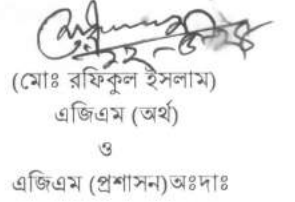 (মোঃ রফিকুল ইসলাম)
এজিএম (অর্থ)
ও
এজিএম (প্রশাসন)অঃদাঃ